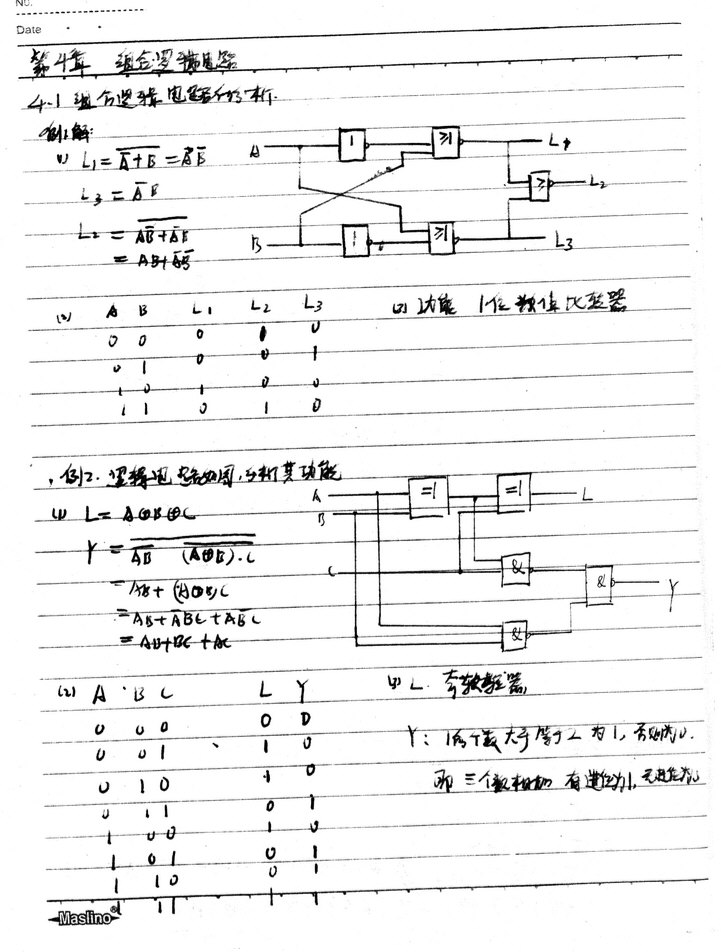 No.
Date
第4章 组合逻辑电路
4.1 组合逻辑电路分析.
例1解:
(1) L₁ = \overline{\overline{A}+B} = A\overline{B}
L₃ = \overline{A}B
L₂ = \overline{A\overline{B}+\overline{A}B}
= AB+\overline{A}\overline{B}
A 1 ≥1 L₁
≥ L₂
B 1 ≥1 L₃
(2) A B L₁ L₂ L₃
0 0 0 1 0
0 1 0 0 1
1 0 1 0 0
1 1 0 1 0
(3) 功能 1位数值比较器
例2. 逻辑电路如图,分析其功能
(1) L = A⊕B⊕C
Y = \overline{\overline{AB} \overline{(A⊕B)·C}}
= AB + (A⊕B)C
= AB+\overline{A}BC+A\overline{B}C
= AB+BC+AC
A =1 =1 L
B
C & & Y
&
(2) A B C L Y
0 0 0 0 0
0 0 1 1 0
0 1 0 1 0
0 1 1 0 1
1 0 0 1 0
1 0 1 0 1
1 1 0 0 1
1 1 1 1 1
(3) L: 奇校验器
Y: 1的个数大于等于2为1,否则为0.
即三个数相加 有进位为1,无进位为0
Maslino